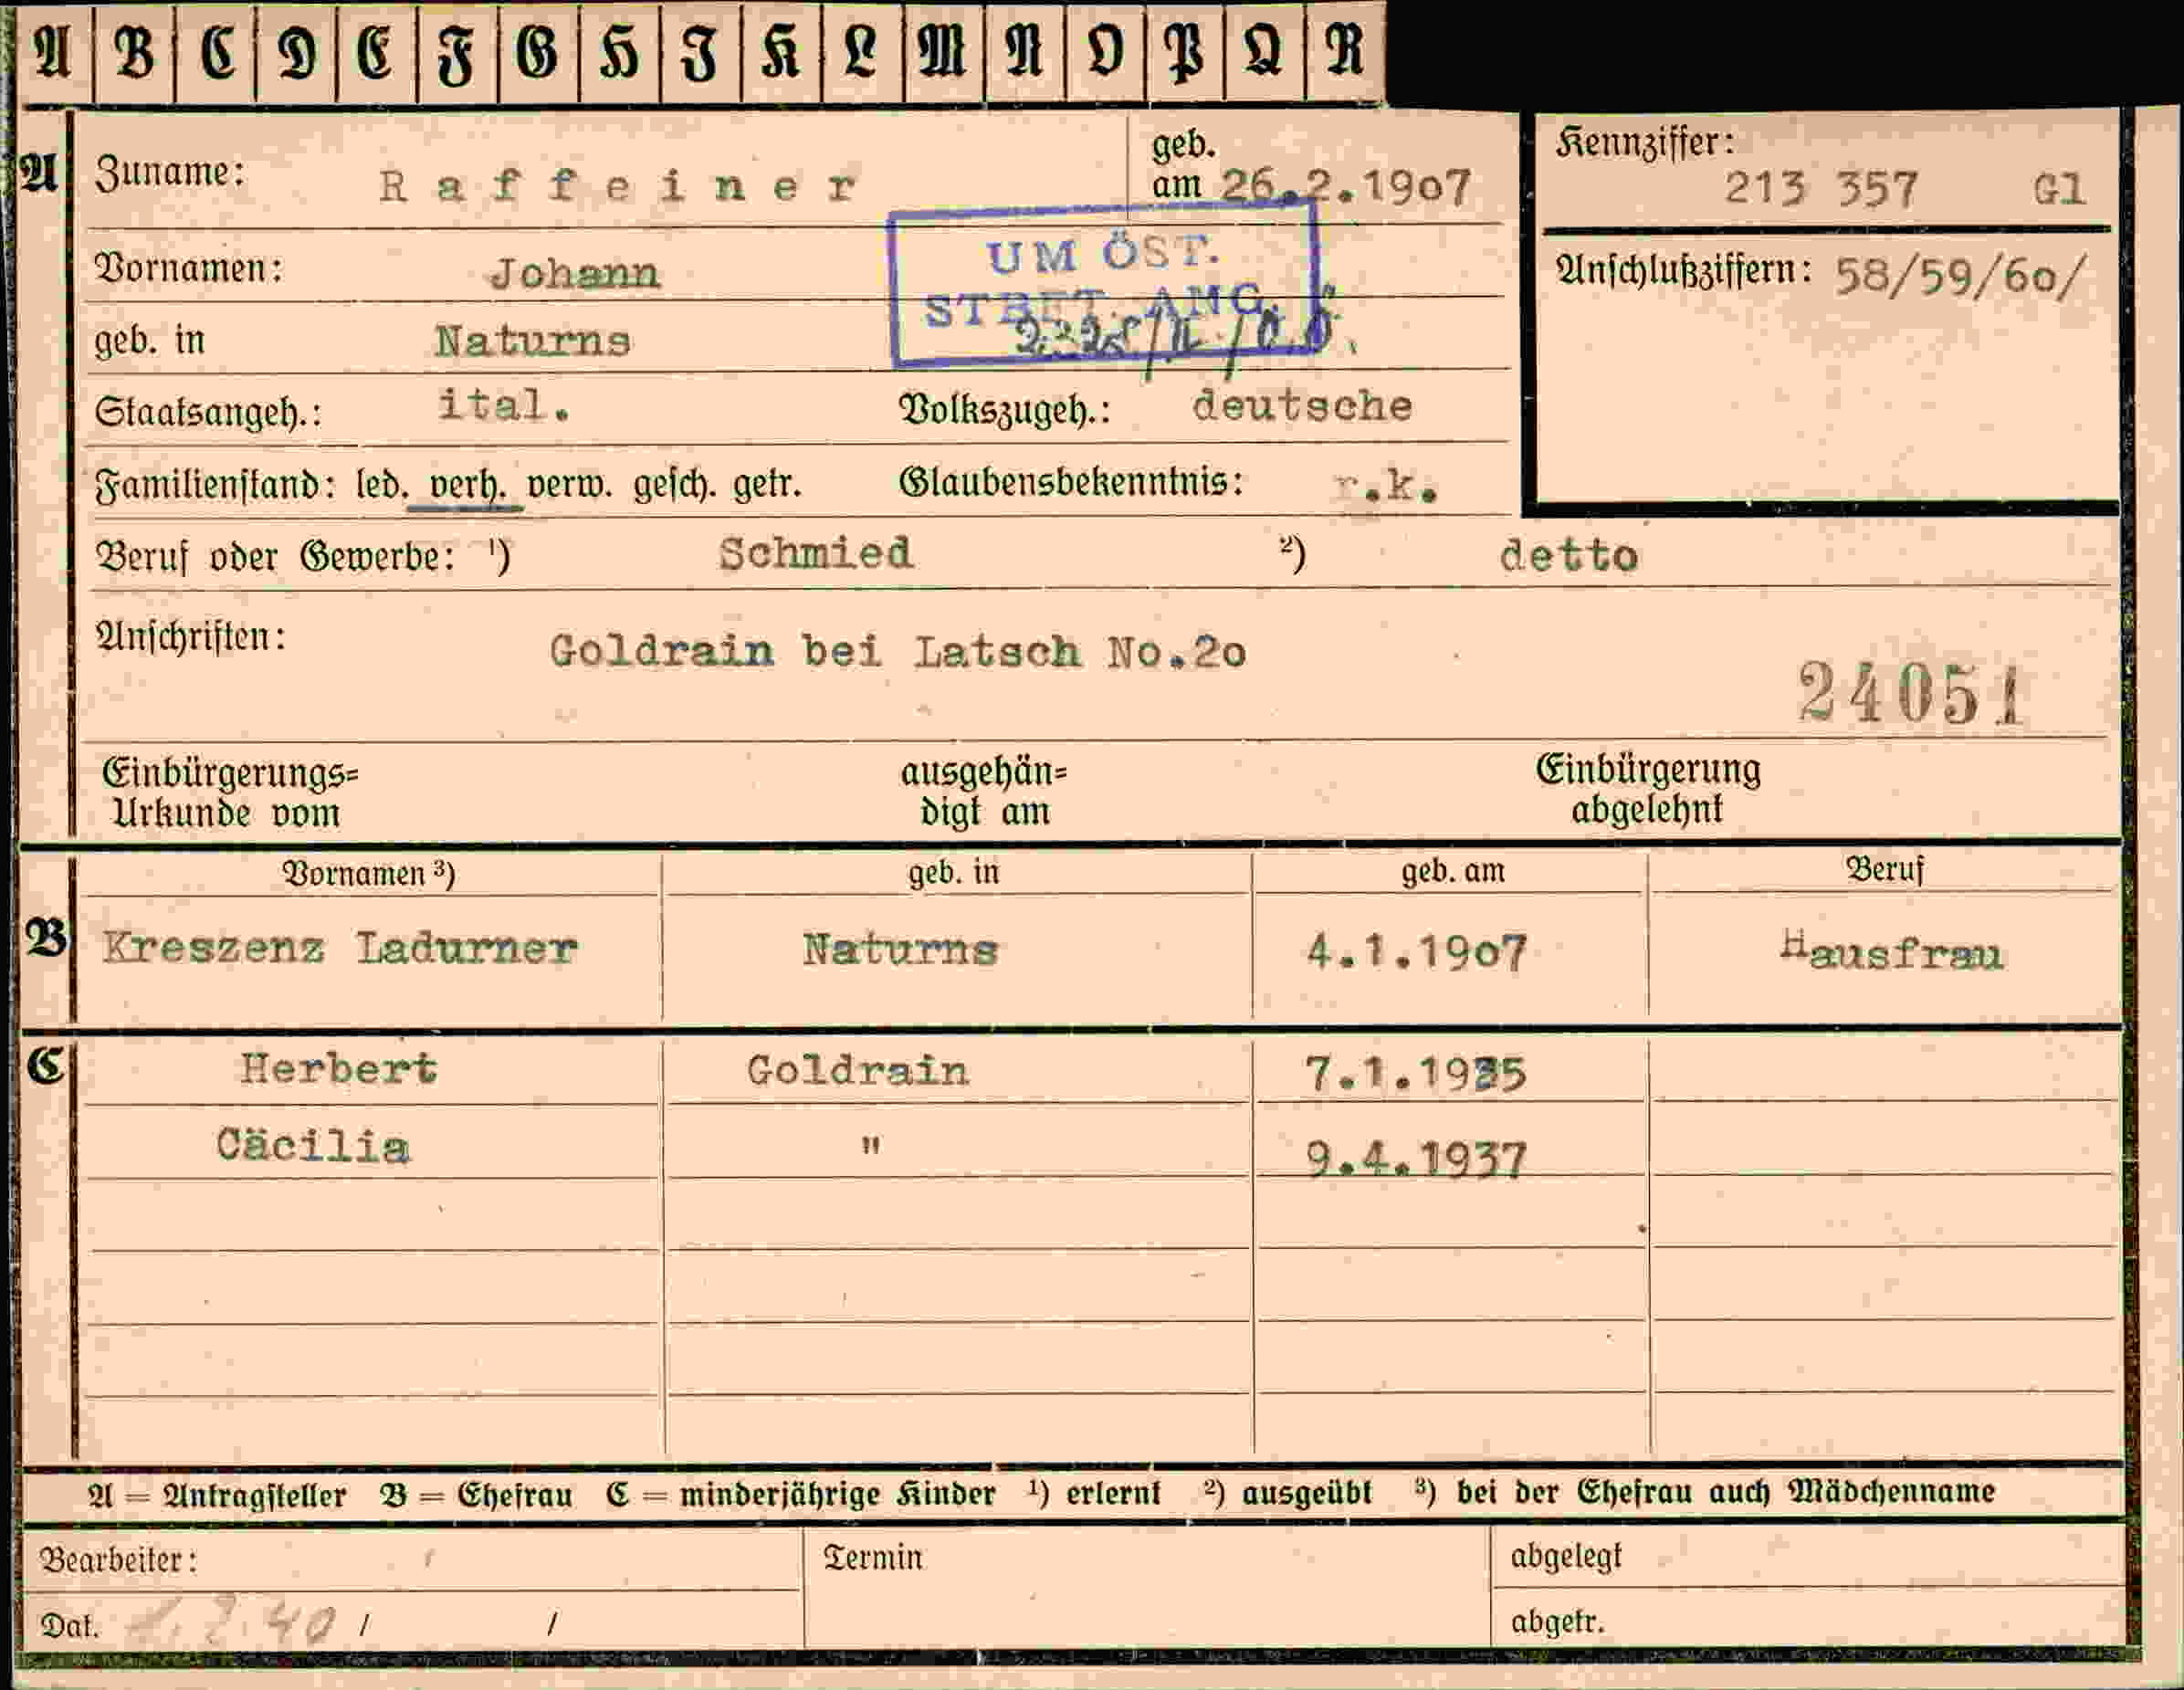 A B C D E F G H I K L M N O P Q R
A Zuname: Raffeiner geb. am 26.2.1907 Kennziffer: 213 357 Gl
Vornamen: Johann Anschlußziffern: 58/59/60/
UM ÖST.
STBET. AMG.
geb. in Naturns
Staatsangeh.: ital. Volkszugeh.: deutsche
Familienstand: led. verh. verw. gesch. getr. Glaubensbekenntnis: r.k.
Beruf oder Gewerbe: ¹) Schmied ²) detto
Anschriften: Goldrain bei Latsch No.20
24051
Einbürgerungs= ausgehän= Einbürgerung
Urkunde vom digt am abgelehnt
Vornamen ³) geb. in geb. am Beruf
B Kreszenz Ladurner Naturns 4.1.1907 Hausfrau
C Herbert Goldrain 7.1.1935
Cäcilia " 9.4.1937
A = Antragsteller B = Ehefrau C = minderjährige Kinder ¹) erlernt ²) ausgeübt ³) bei der Ehefrau auch Mädchenname
Bearbeiter: Termin abgelegt
Dat. 40 / / abgetr.